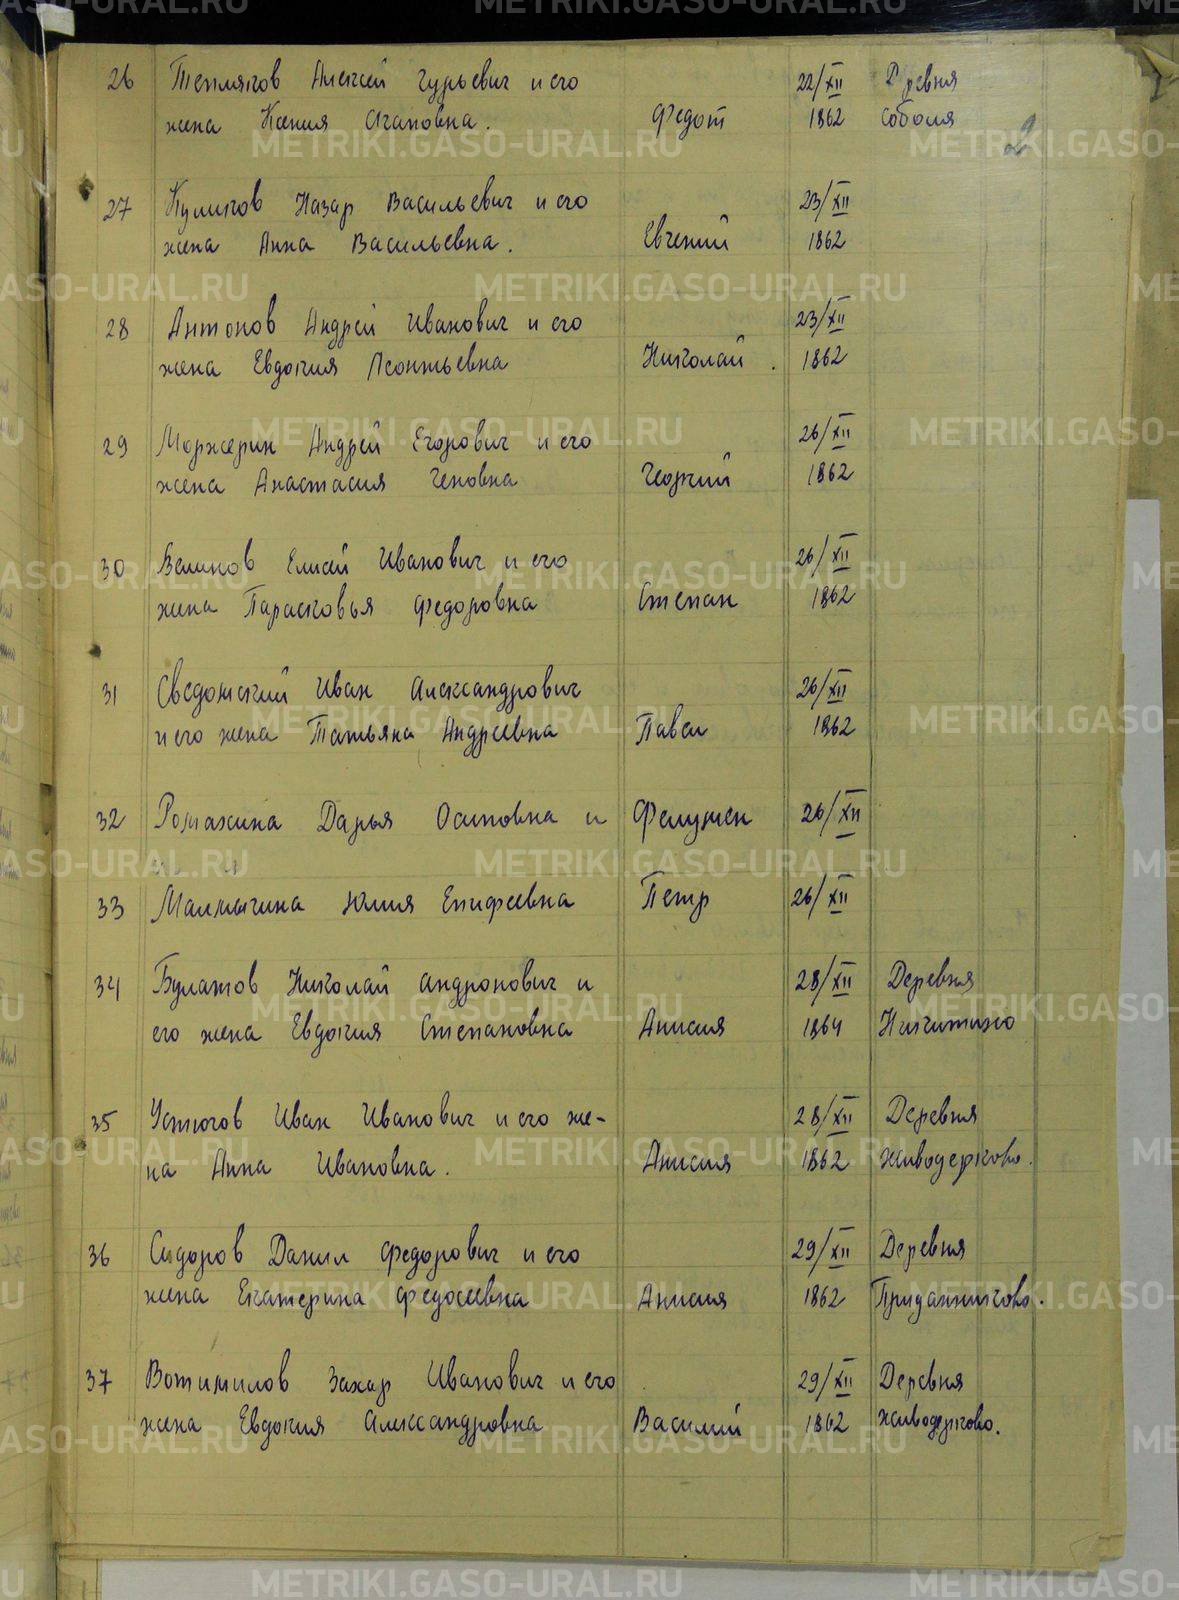 2
26 Тепляков Алексей Гурьевич и его 22/XII Деревня
жена Ксения Агаповна. Федот 1862 Соболя
27 Куликов Назар Васильевич и его 23/XII
жена Анна Васильевна. Евгений 1862
28 Антонов Андрей Иванович и его 23/XII
жена Евдокия Леонтьевна Николай. 1862
29 Моржерин Андрей Егорович и его 26/XII
жена Анастасия Геновна Георгий 1862
30 Иванович и его 26/XII
жена Парасковья Федоровна Степан 1862
31 Сведомский Иван Александрович 26/XII
и его жена Татьяна Андреевна Павел 1862
32 Ромахина Дарья Осиповна и 26/XII
33 Малмыгина Юлия Епифеевна Петр 26/XII
34 Булатов Николай Андронович и 28/XII Деревня
его жена Евдокия Степановна Анисия 1864
35 Устюгов Иван Иванович и его же- 28/XII Деревня
на Анна Ивановна. Анисия 1862 Живодерково.
36 Сидоров Данил Федорович и его 29/XII Деревня
жена Екатерина Федосеевна Анисия 1862 Приданниково.
37 Вотинилов Захар Иванович и его 29/XII Деревня
жена Евдокия Александровна Василий 1862 Живодерково.
METRIKI.GASO-URAL.RU